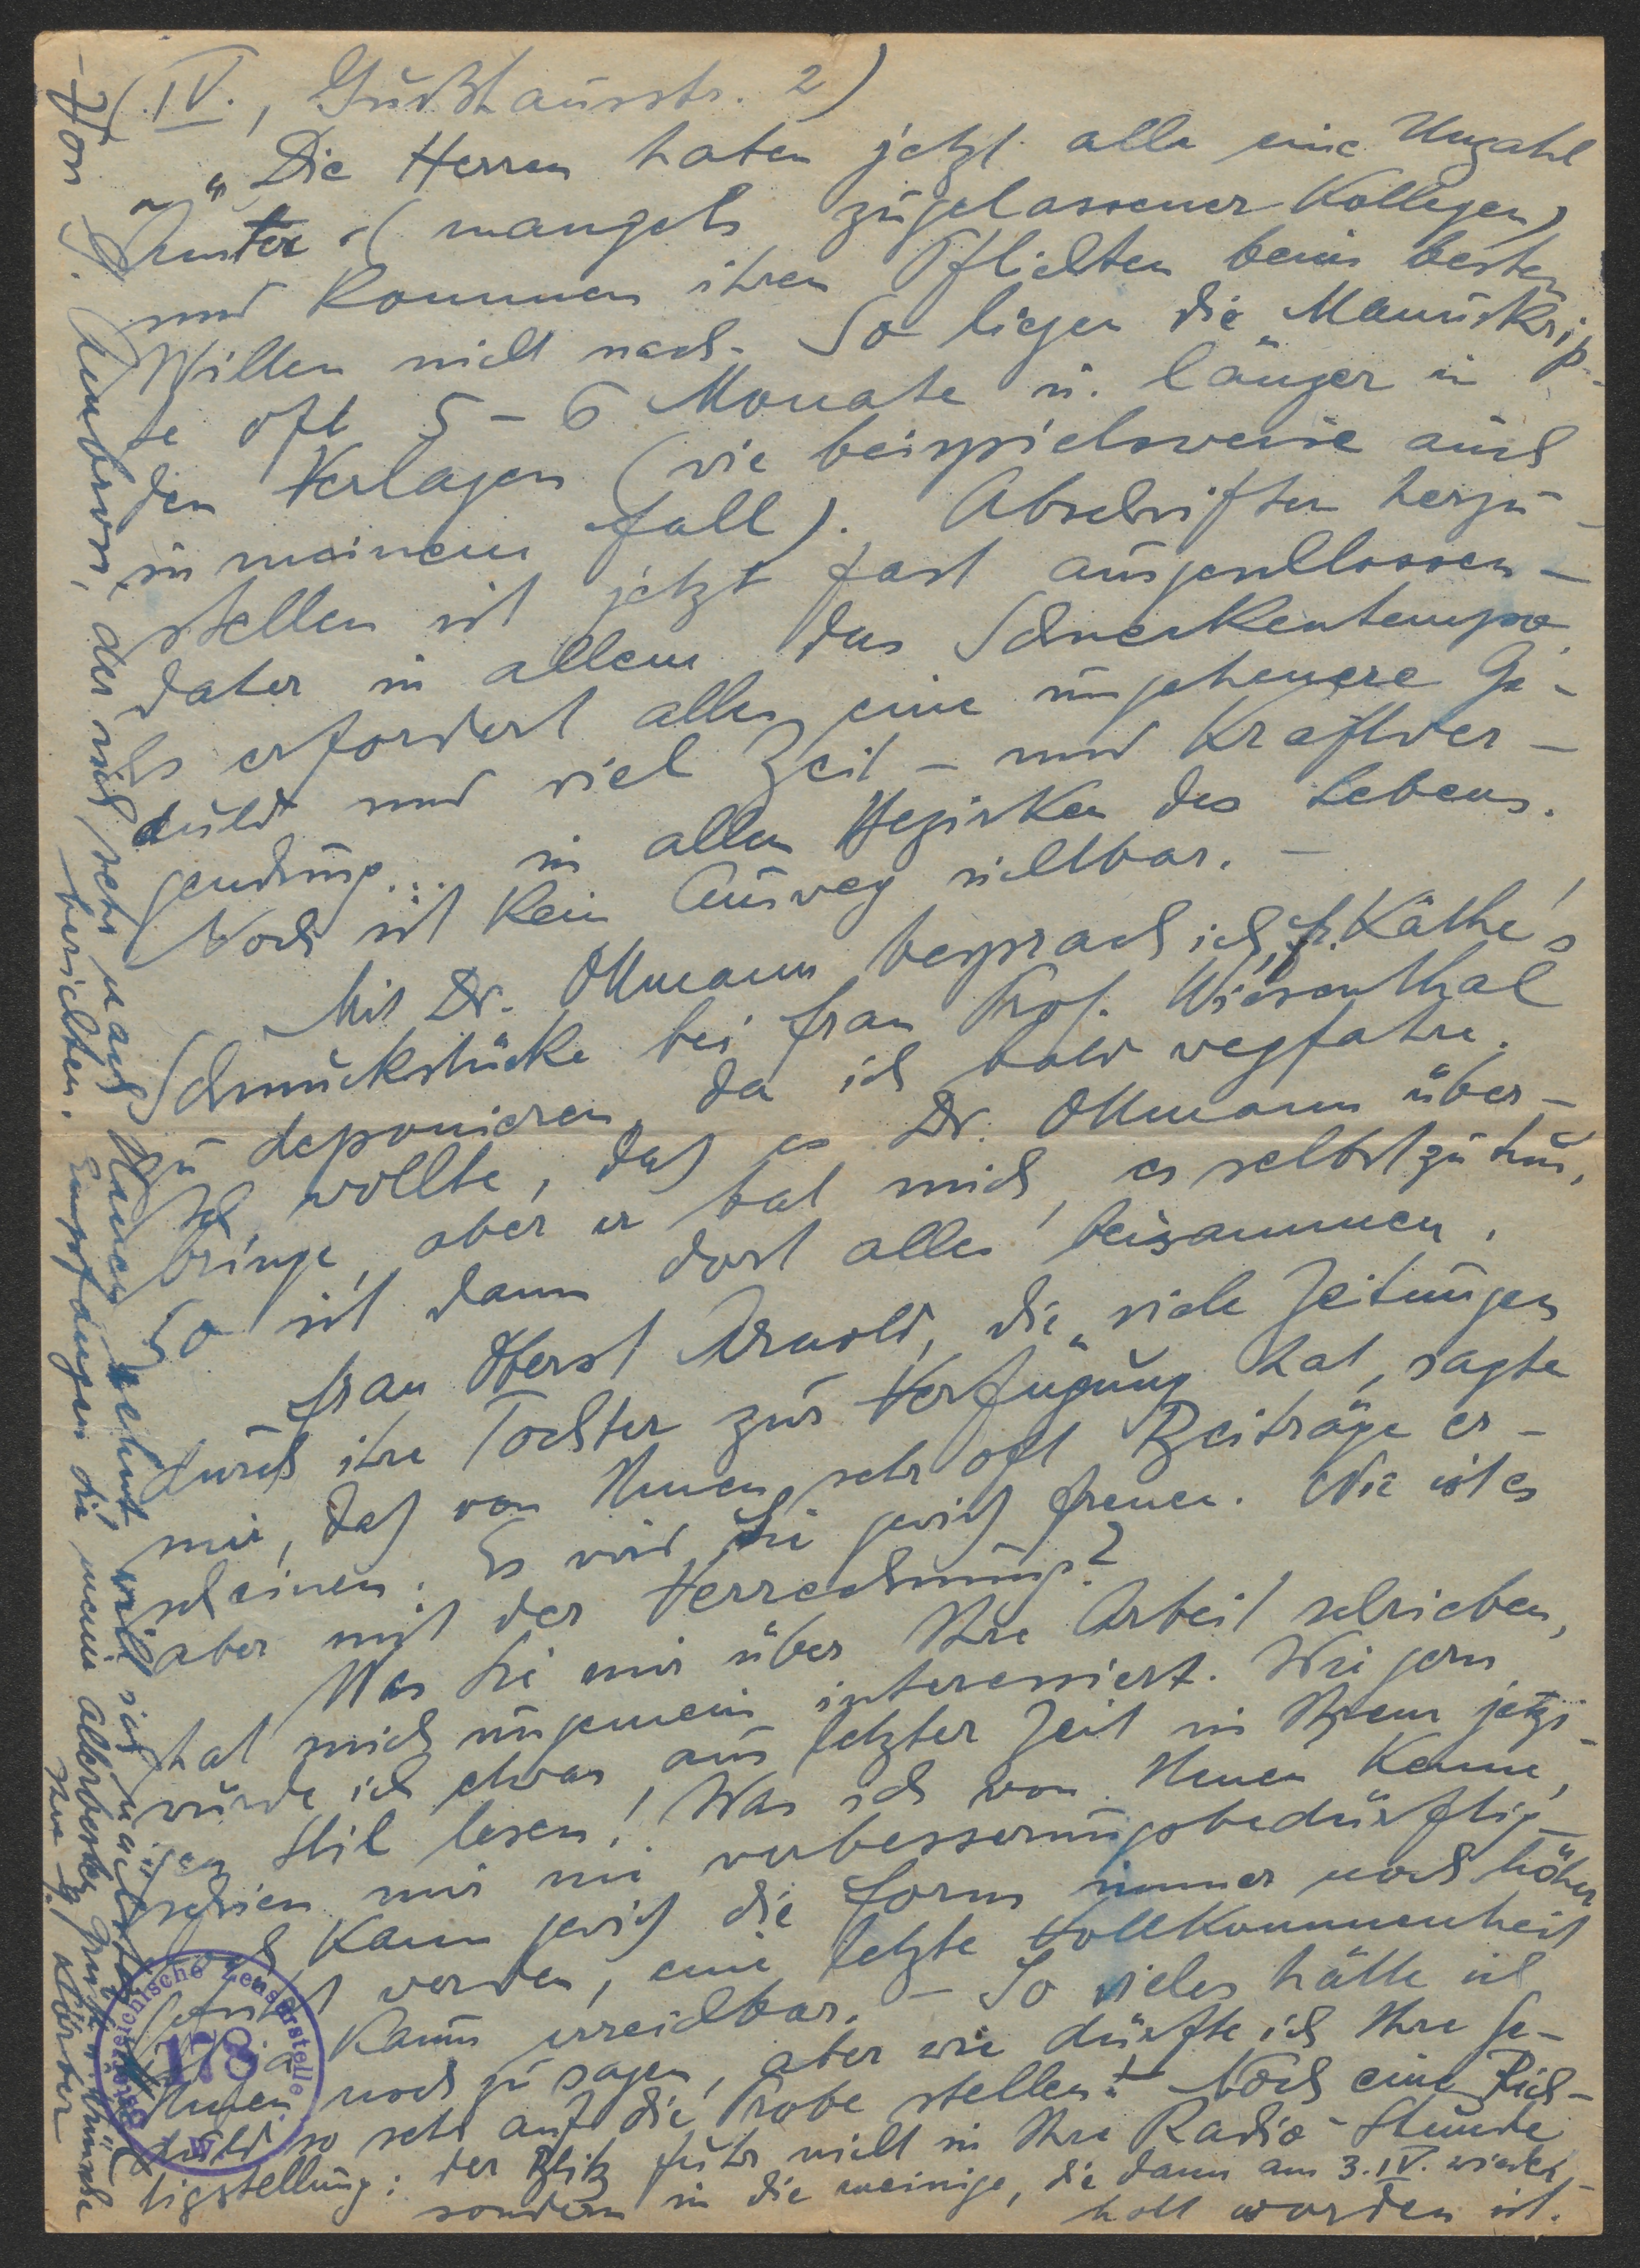 (IV., Gußhausstr. 2)
"Die Herren haben jetzt alle eine Unzahl
Ämter (mangels zugelassener Kollegen)
und kommen ihren Pflichten beim besten
Willen nicht nach. So liegen die Manuskrip-
te oft 5-6 Monate u. länger in
den Verlagen (wie beispielsweise auch
in meinem Fall). Abschriften herzu-
stellen ist jetzt fast ausgeschlossen -
daher in allem das Schneckentempo.
Es erfordert alles eine ungeheuere Ge-
duld und viel Zeit- und Kraftver-
geudung... in allen Bezirken des Lebens.
Noch ist kein Ausweg sichtbar. -
Mit Dr. Ollmann besprach ich, Fr. Käthe's
Schmuckstücke bei Frau Prof. Wiesenthal
zu deponieren, da ich bald wegfahre.
Ich wollte, daß es Dr. Ollmann über-
bringe, aber er bat mich, es selbst zu tun.
So ist dann dort alles beisammen.
Frau Oberst Arnold, die viele Zeitungen
durch ihre Tochter zur Verfügung hat, sagte
mir, daß von Ihnen sehr oft Beiträge er-
scheinen. Es wird Sie gewiß freuen. Wie ist es
aber mit der Verrechnung?
Was Sie mir über Ihre Arbeit schrieben,
hat mich ungemein interessiert. Wie gern
würde ich etwas aus letzter Zeit in Ihrem jetzi-
gen Stil lesen! Was ich von Ihnen kenne,
schien mir nie verbesserungsbedürftig -
doch kann gewiß die Form immer noch höher
werden, eine letzte Vollkommenheit
ist ja kaum erreichbar. - So vieles hätte ich
Ihnen noch zu sagen, aber wie dürfte ich Ihre Ge-
duld so sehr auf die Probe stellen! Noch eine Rich-
tigstellung: der Blitz fuhr nicht in Ihre Radio-Stunde
sondern in die meinige, die dann am 3.IV. wieder-
holt worden ist.
- Von G. , der sich sehr nach Ihnen sehnt will ich nächstens
berichten. Empfangen Sie meine allerbesten Grüße u. Wünsche
Ihre G. Körber
Österreichische Zensurstelle
178
W